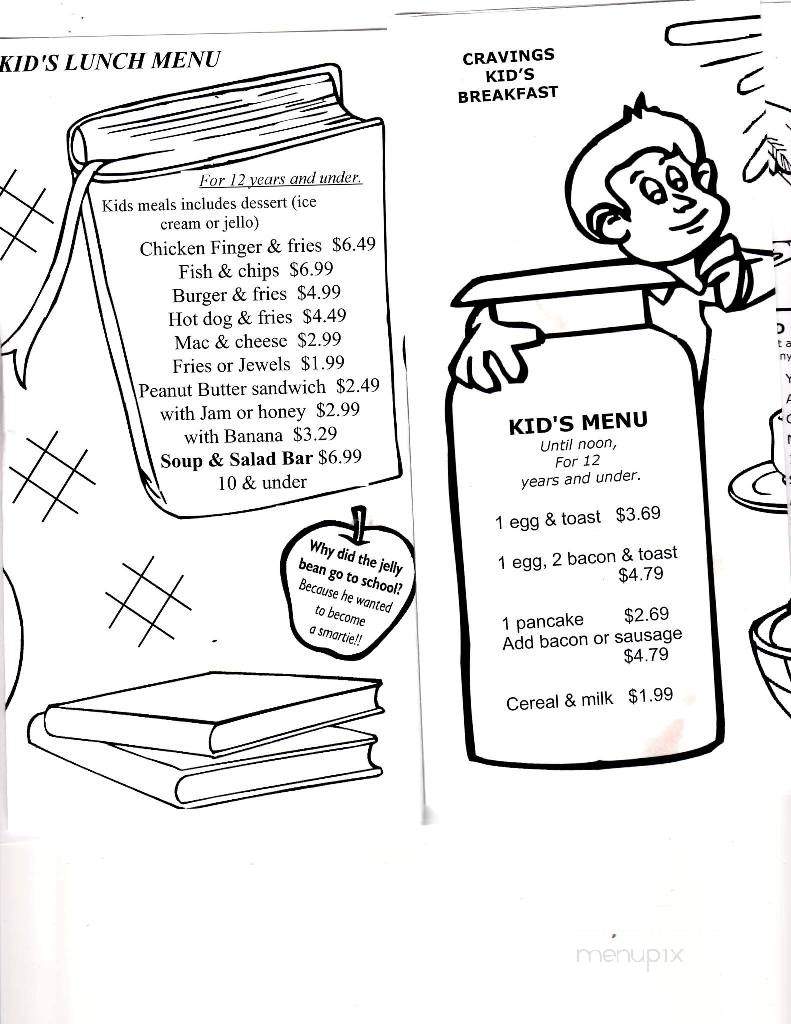 KID'S LUNCH MENU
For 12 years and under.
Kids meals includes dessert (ice
cream or jello)
Chicken Finger & fries $6.49
Fish & chips $6.99
Burger & fries $4.99
Hot dog & fries $4.49
Mac & cheese $2.99
Fries or Jewels $1.99
Peanut Butter sandwich $2.49
with Jam or honey $2.99
with Banana $3.29
Soup & Salad Bar $6.99
10 & under
Why did the jelly
bean go to school?
Because he wanted
to become
a smartie!!
CRAVINGS
KID'S
BREAKFAST
KID'S MENU
Until noon,
For 12
years and under.
1 egg & toast $3.69
1 egg, 2 bacon & toast
$4.79
1 pancake $2.69
Add bacon or sausage
$4.79
Cereal & milk $1.99
menupix